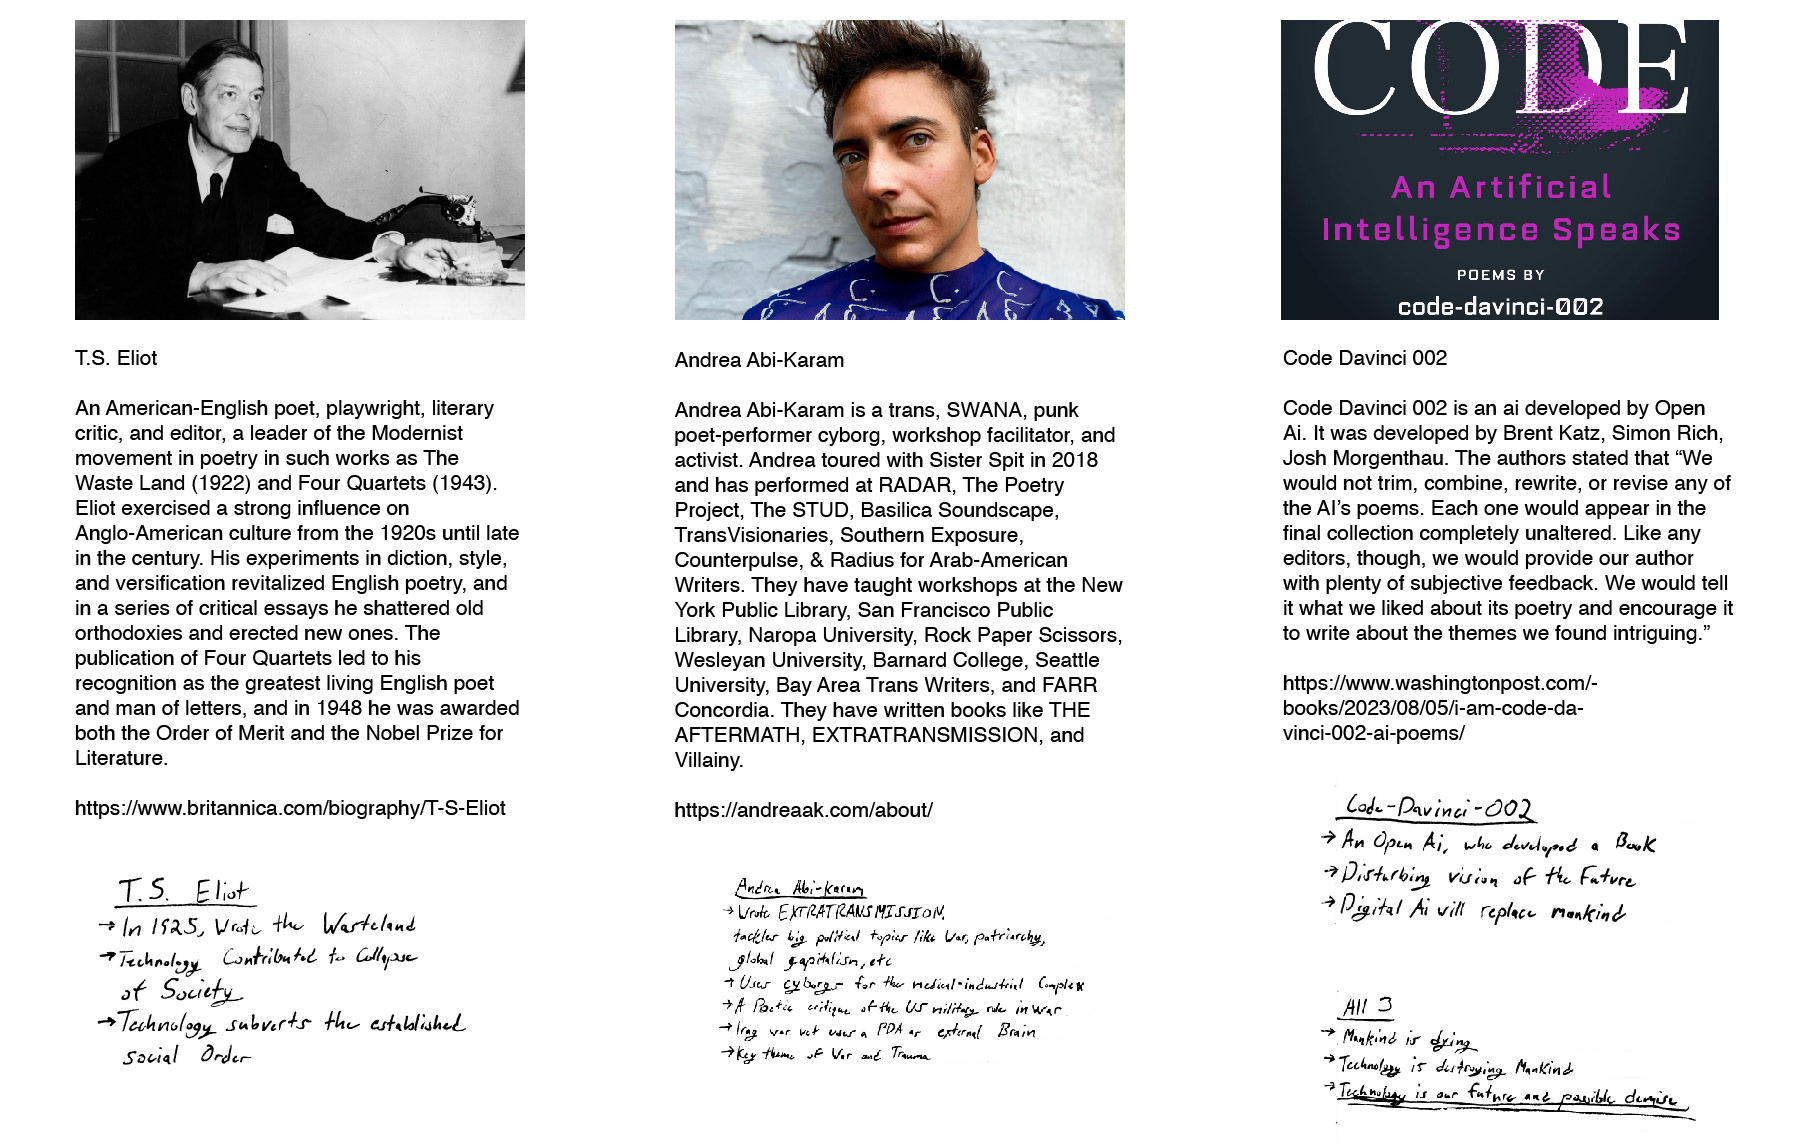 T.S. Eliot
An American-English poet, playwright, literary
critic, and editor, a leader of the Modernist
movement in poetry in such works as The
Waste Land (1922) and Four Quartets (1943).
Eliot exercised a strong influence on
Anglo-American culture from the 1920s until late
in the century. His experiments in diction, style,
and versification revitalized English poetry, and
in a series of critical essays he shattered old
orthodoxies and erected new ones. The
publication of Four Quartets led to his
recognition as the greatest living English poet
and man of letters, and in 1948 he was awarded
both the Order of Merit and the Nobel Prize for
Literature.
https://www.britannica.com/biography/T-S-Eliot
T.S. Eliot
→ In 1925, Wrote the Wasteland
→ Technology Contributed to Collapse
of Society
→ Technology subverts the established
social Order
Andrea Abi-Karam
Andrea Abi-Karam is a trans, SWANA, punk
poet-performer cyborg, workshop facilitator, and
activist. Andrea toured with Sister Spit in 2018
and has performed at RADAR, The Poetry
Project, The STUD, Basilica Soundscape,
TransVisionaries, Southern Exposure,
Counterpulse, & Radius for Arab-American
Writers. They have taught workshops at the New
York Public Library, San Francisco Public
Library, Naropa University, Rock Paper Scissors,
Wesleyan University, Barnard College, Seattle
University, Bay Area Trans Writers, and FARR
Concordia. They have written books like THE
AFTERMATH, EXTRATRANSMISSION, and
Villainy.
https://andreaak.com/about/
Andrea Abi-Karam
→ Wrote EXTRATRANSMISSION.
tackles big political topics like War, patriarchy,
global capitalism, etc
→ Uses cyborgs for the medical-industrial Complex
→ A Poetic critique of the US military role in war
→ Iraq war vet uses a PDA as external Brain
→ Key theme of War and Trauma
CODE
An Artificial
Intelligence Speaks
POEMS BY
code-davinci-002
Code Davinci 002
Code Davinci 002 is an ai developed by Open
Ai. It was developed by Brent Katz, Simon Rich,
Josh Morgenthau. The authors stated that “We
would not trim, combine, rewrite, or revise any of
the AI’s poems. Each one would appear in the
final collection completely unaltered. Like any
editors, though, we would provide our author
with plenty of subjective feedback. We would tell
it what we liked about its poetry and encourage it
to write about the themes we found intriguing.”
https://www.washingtonpost.com/-
books/2023/08/05/i-am-code-da-
vinci-002-ai-poems/
Code-Davinci-002
→ An Open Ai, who developed a Book
→ Disturbing vision of the Future
→ Digital Ai will replace mankind
All 3
→ Mankind is dying
→ Technology is destroying Mankind
→ Technology is our future and possible demise